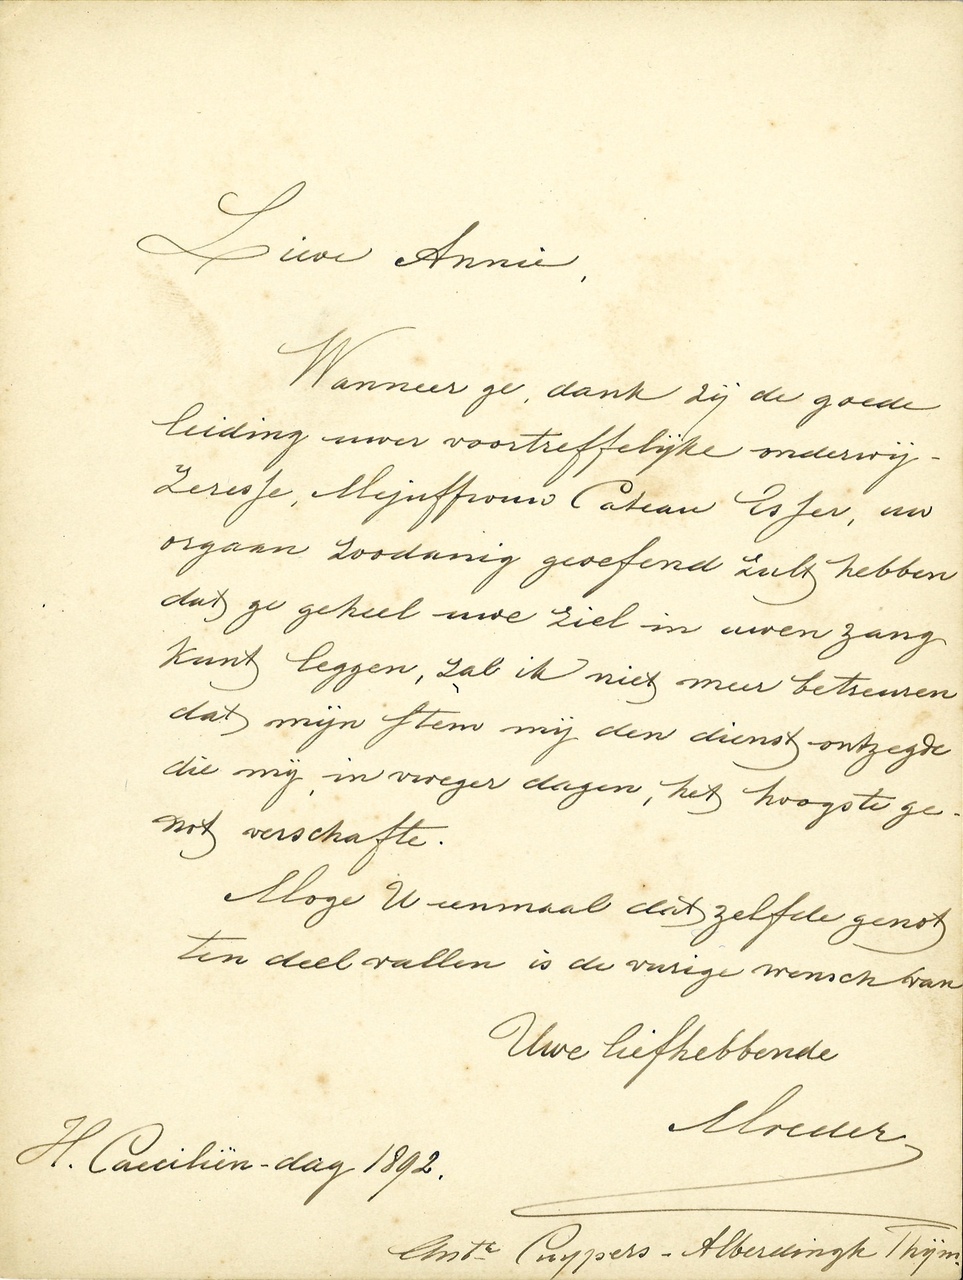 Lieve Annie,
Wanneer ge, dank zij de goede
leiding uwer voortreffelijke onderwij-
zeresse, Mejuffrouw Cateau Esser, uw
orgaan zoodanig geoefend zult hebben
dat ge geheel uwe ziel in uwen zang
kunt leggen, zal ik niet meer betreuren
dat mijn stem mij den dienst ontzegde
die mij, in vroeger dagen, het hoogste ge-
not verschafte.
Moge U eenmaal dat zelfde genot
ten deel vallen is de vurige wensch van
Uwe liefhebbende
Moeder
H. Caeciliën-dag 1892.
Antte Cuypers-Alberdingk Thijm.